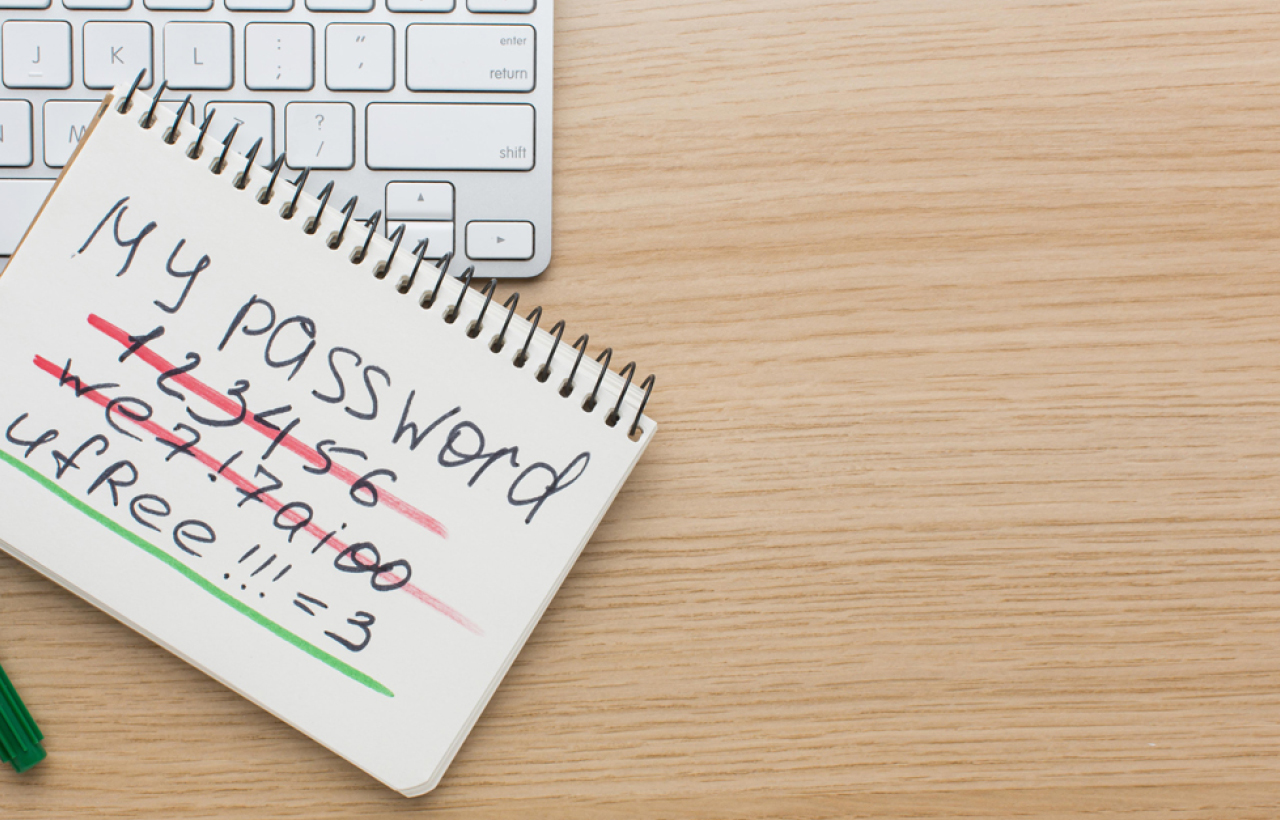 J K L : ; " , enter return
M ? / shift
My password
123456
we7!7aioo
ufRee!!!=3